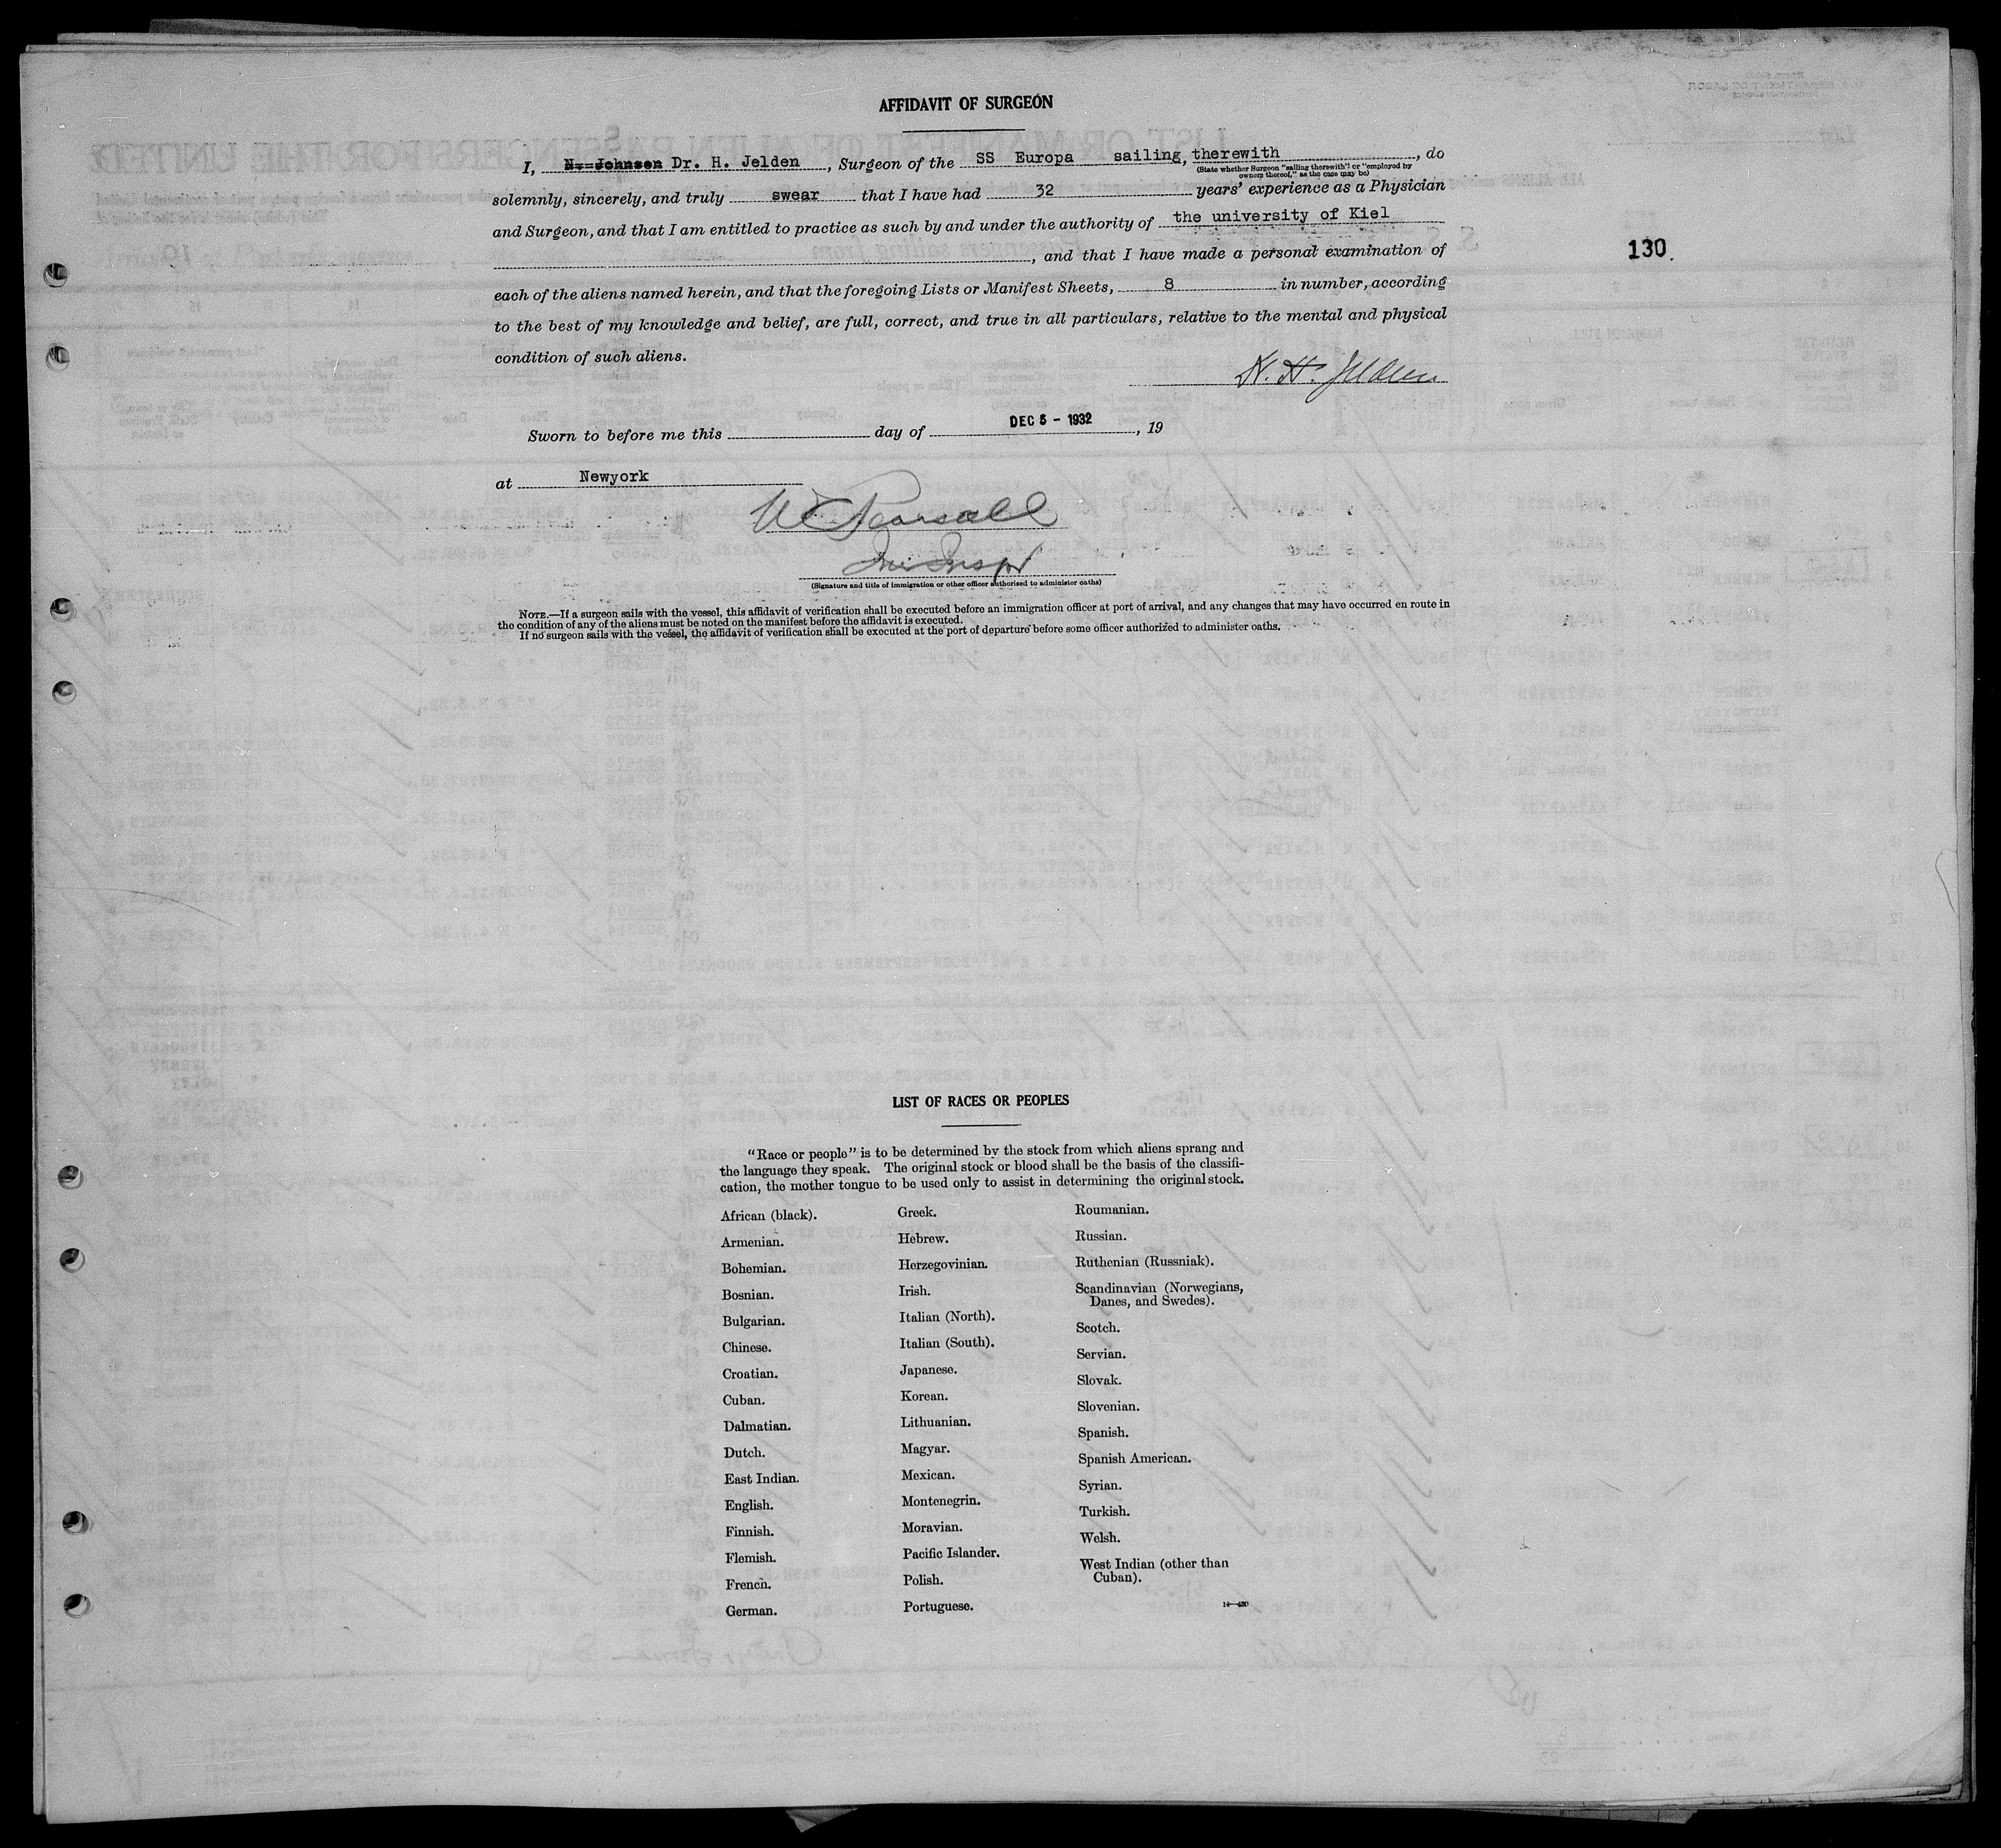 AFFIDAVIT OF SURGEON
I, N. Johnsen Dr. H. Jelden, Surgeon of the SS Europa sailing, therewith, do
(State whether Surgeon "sailing therewith" or "employed by
owners thereof," as the case may be)
solemnly, sincerely, and truly swear that I have had 32 years' experience as a Physician
and Surgeon, and that I am entitled to practice as such by and under the authority of the university of Kiel
, and that I have made a personal examination of
130.
each of the aliens named herein, and that the foregoing Lists or Manifest Sheets, 8 in number, according
to the best of my knowledge and belief, are full, correct, and true in all particulars, relative to the mental and physical
condition of such aliens.
H. H. Jelden
Sworn to before me this day of DEC 5 - 1932, 19
at Newyork
W Pearsall
Imi Inspr
(Signature and title of immigration or other officer authorized to administer oaths)
NOTE.—If a surgeon sails with the vessel, this affidavit of verification shall be executed before an immigration officer at port of arrival, and any changes that may have occurred en route in
the condition of any of the aliens must be noted on the manifest before the affidavit is executed.
If no surgeon sails with the vessel, the affidavit of verification shall be executed at the port of departure before some officer authorized to administer oaths.
LIST OF RACES OR PEOPLES
"Race or people" is to be determined by the stock from which aliens sprang and
the language they speak. The original stock or blood shall be the basis of the classifi-
cation, the mother tongue to be used only to assist in determining the original stock.
African (black).
Armenian.
Bohemian.
Bosnian.
Bulgarian.
Chinese.
Croatian.
Cuban.
Dalmatian.
Dutch.
East Indian.
English.
Finnish.
Flemish.
French.
German.
Greek.
Hebrew.
Herzegovinian.
Irish.
Italian (North).
Italian (South).
Japanese.
Korean.
Lithuanian.
Magyar.
Mexican.
Montenegrin.
Moravian.
Pacific Islander.
Polish.
Portuguese.
Roumanian.
Russian.
Ruthenian (Russniak).
Scandinavian (Norwegians,
Danes, and Swedes).
Scotch.
Servian.
Slovak.
Slovenian.
Spanish.
Spanish American.
Syrian.
Turkish.
Welsh.
West Indian (other than
Cuban).